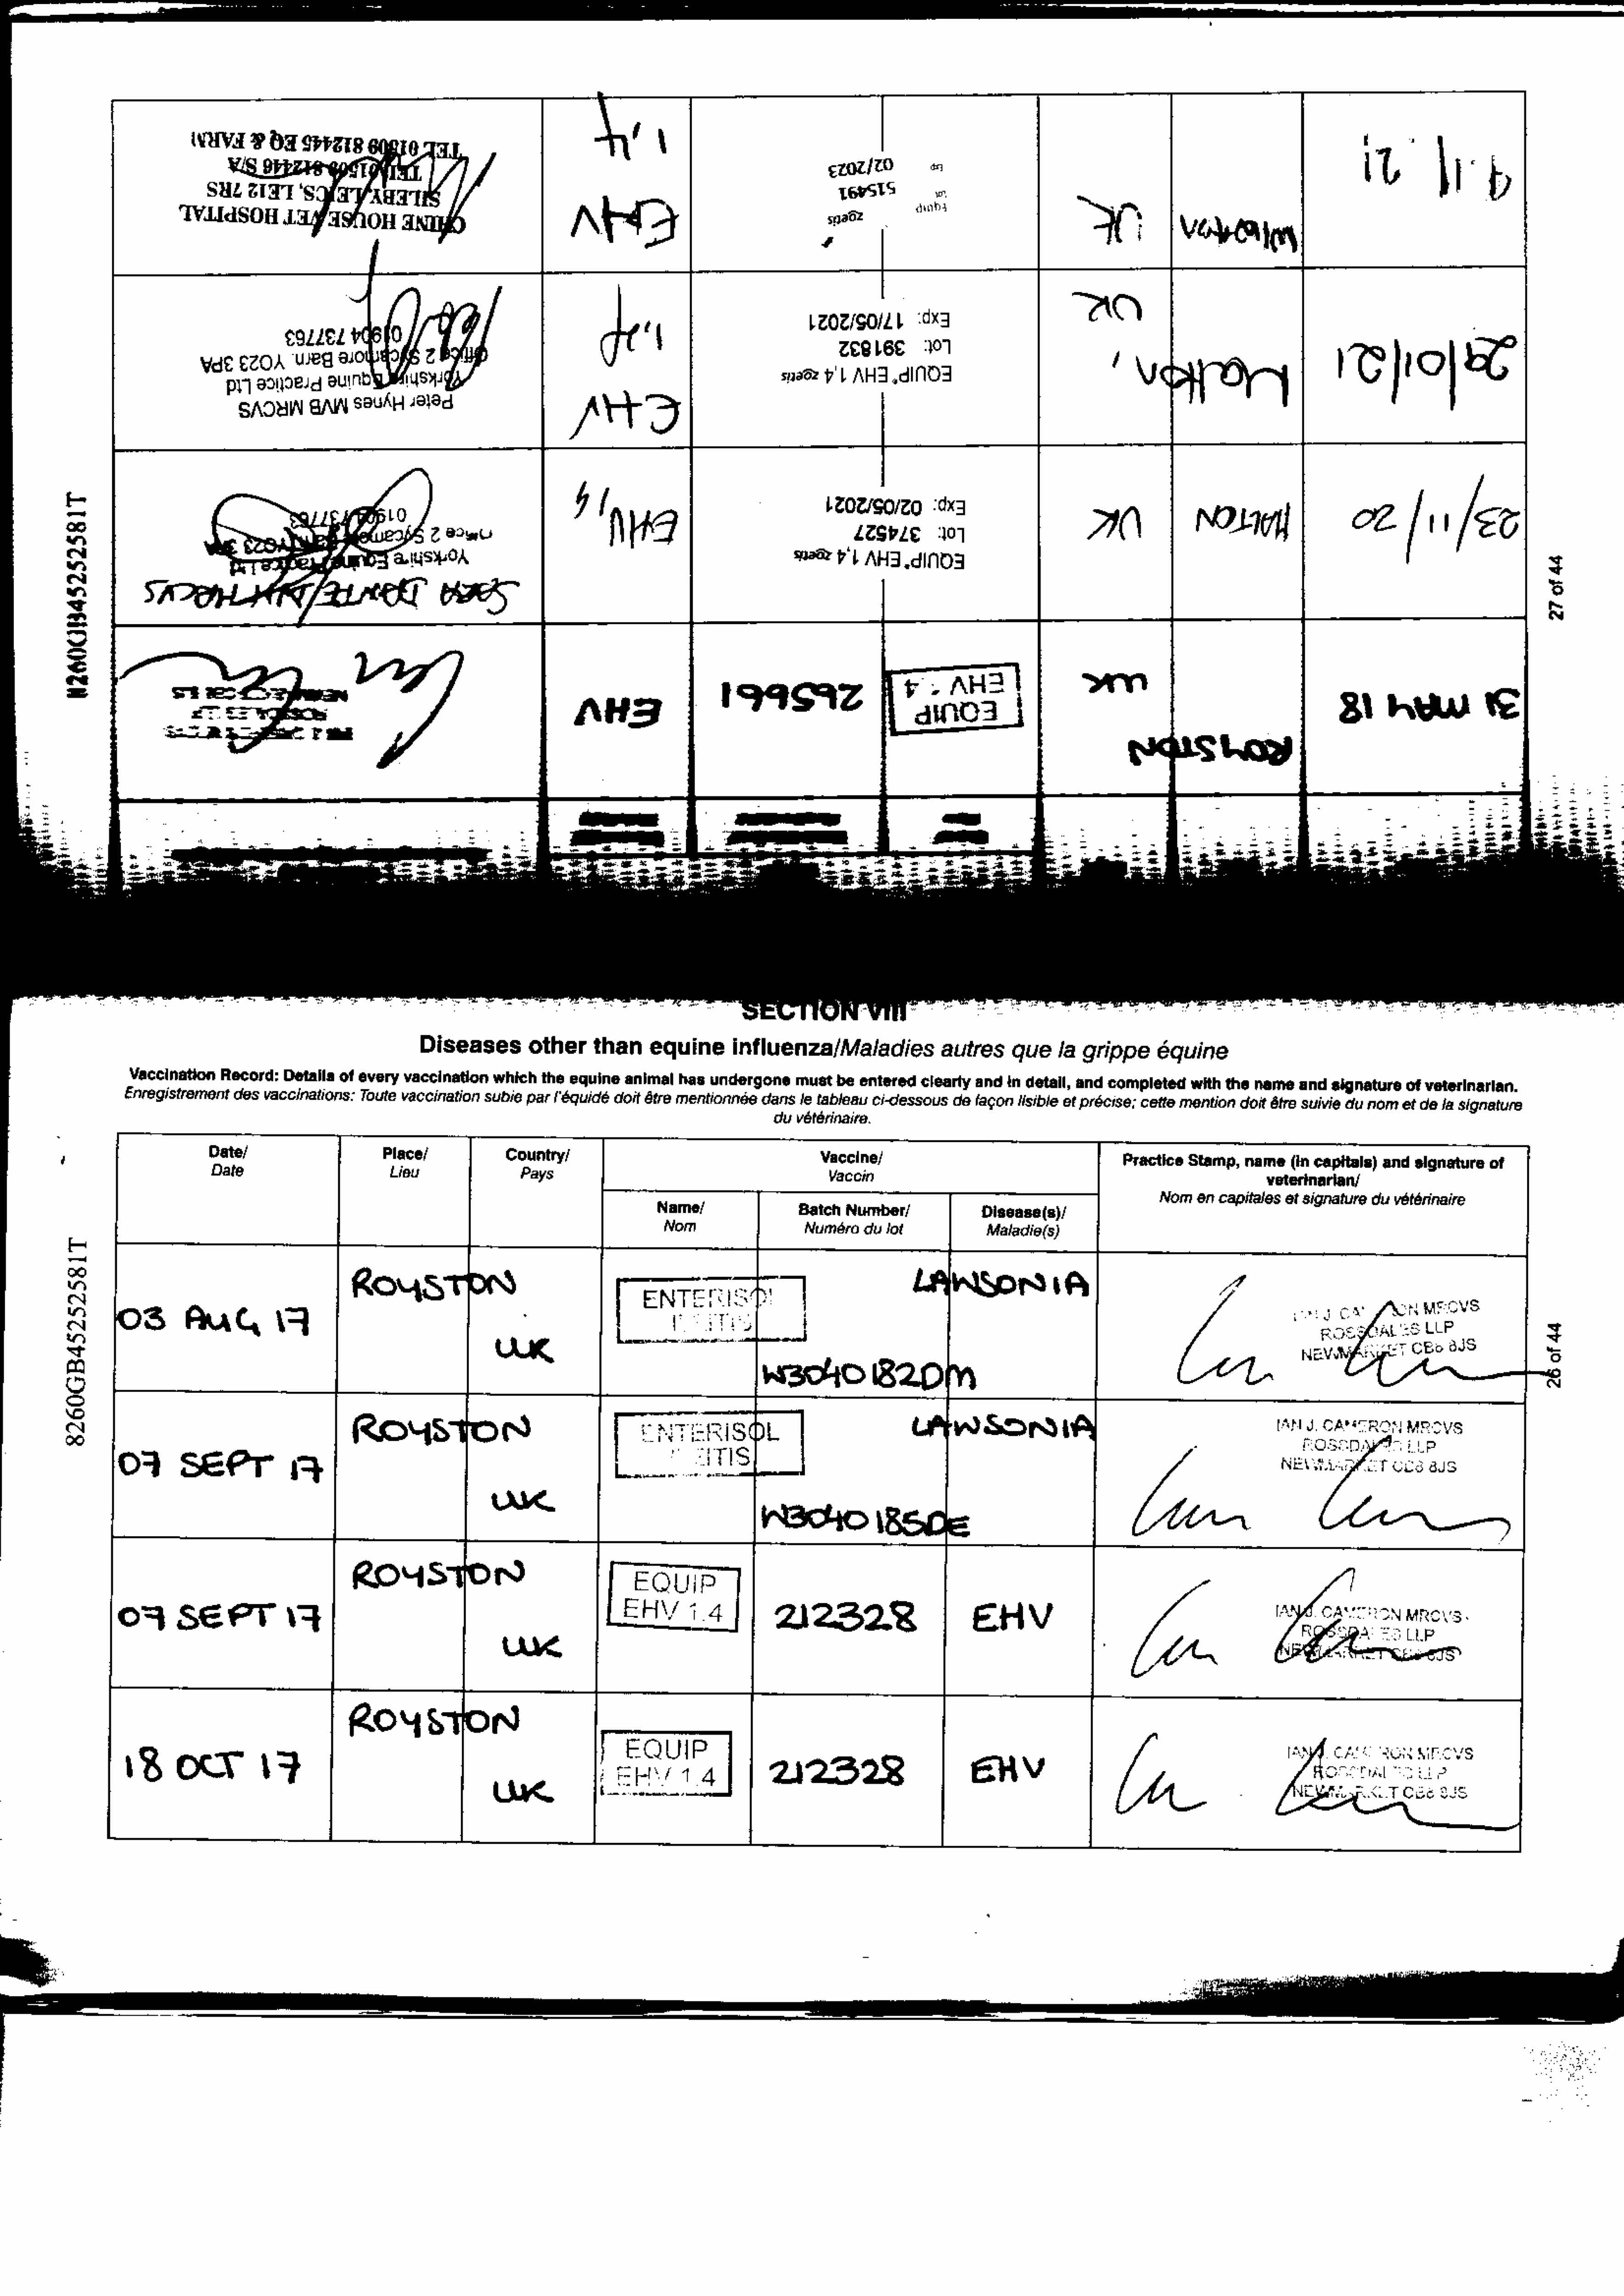 31 MAY 18
ROYSTON
UK
EQUIP
EHV 1.4
265661
EHV
23/11/20
MALTON
UK
EQUIP® EHV 1,4 zoetis
Lot: 374527
Exp: 02/05/2021
EHV 1,4
MRCVS
Yorkshire Equine Practice Ltd
Office 2 Sycamore Barn, YO23 3PA
01904 737763
29/01/21
Malton,
UK
EQUIP® EHV 1,4 zoetis
Lot: 391832
Exp: 17/05/2021
EHV
1,4
Peter Hynes MVB MRCVS
Yorkshire Equine Practice Ltd
Office 2 Sycamore Barn. YO23 3PA
01904 737763
9.11.21
UK
Equip
zoetis
Lot
515491
Exp
02/2023
EHV
1,4
CHINE HOUSE VET HOSPITAL
SILEBY, LEICS, LE12 7RS
TEL 01509 812446 S/A
TEL 01509 812445 EQ & FARM
27 of 44
SECTION VIII
Diseases other than equine influenza/Maladies autres que la grippe équine
Vaccination Record: Details of every vaccination which the equine animal has undergone must be entered clearly and in detail, and completed with the name and signature of veterinarian.
Enregistrement des vaccinations: Toute vaccination subie par l'équidé doit être mentionnée dans le tableau ci-dessous de façon lisible et précise; cette mention doit être suivie du nom et de la signature
du vétérinaire.
Date/
Date
Place/
Lieu
Country/
Pays
Vaccine/
Vaccin
Name/
Nom
Batch Number/
Numéro du lot
Disease(s)/
Maladie(s)
Practice Stamp, name (in capitals) and signature of
veterinarian/
Nom en capitales et signature du vétérinaire
03 AUG 17
ROYSTON
UK
ENTERISOL
ILEITIS
W3040182DM
LAWSONIA
IAN J. CAMERON MRCVS
ROSSDALES LLP
NEWMARKET CB8 8JS
07 SEPT 17
ROYSTON
UK
ENTERISOL
ILEITIS
W3040185DE
LAWSONIA
IAN J. CAMERON MRCVS
ROSSDALES LLP
NEWMARKET CB8 8JS
07 SEPT 17
ROYSTON
UK
EQUIP
EHV 1.4
212328
EHV
IAN J. CAMERON MRCVS
ROSSDALES LLP
NEWMARKET CB8 8JS
18 OCT 17
ROYSTON
UK
EQUIP
EHV 1.4
212328
EHV
IAN J. CAMERON MRCVS
ROSSDALES LLP
NEWMARKET CB8 8JS
8260GB45252581T
26 of 44